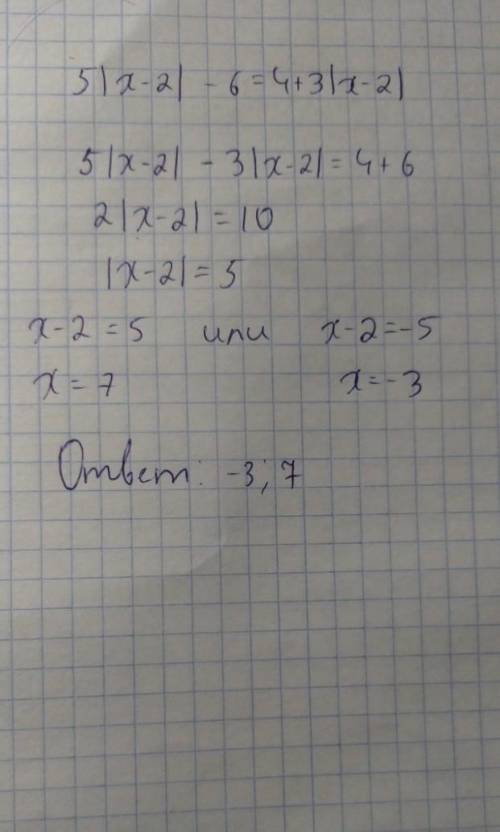 5|x-2| - 6 = 4+3|x-2|
5|x-2| - 3|x-2| = 4+6
2|x-2| = 10
|x-2| = 5
x-2 = 5 или x-2 = -5
x = 7 x = -3
Ответ: -3; 7